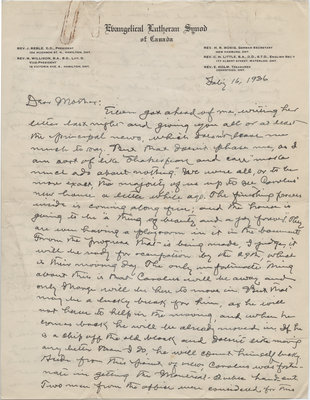 Evangelical Lutheran Synod
of Canada
REV. J. REBLE, D.D., President
REV. N. WILLISON, B.A., B.D., Litt. D.
Vice-President
REV. H. R. MOSIG, German Secretary
NEW HAMBURG, ONT.
REV. C. H. LITTLE, B.A., D.D., S.T.D., English Sec'y
REV. E. HOLM, Treasurer
Feb'y 16, 1936
Dear Mother:
Even got ahead of me, writing her
letter last night and giving you all or at least
the principal news, which doesn't leave me
much to say. But that doesn't phase me, as I
am sort of like Shakespeare and can make
much ado about nothing. We were all, or to be
more exact, the majority of us up to see Carolus'
new house a little while ago. The finishing process
inside is coming along fine, and the house is
going to be a thing of beauty and a joy forever. They
are even having a playroom in it in the basement
From the progress that is being made, I judge, it
will be ready for occupation by the 29th, what
is this moving day. The only unfortunate thing
about this is that Carolus will be away and
only Marge will be here to move in. But that
may be a lucky break for him, as he will
not have to help in the moving, and when he
comes back he will be already moved in. If he
is a chip off the old block and doesn't like moving
any better than I do, he will count himself lucky
Aside from this point of view Carolus was fortu-
nate in getting the Montreal
Two men from the office were considered for this